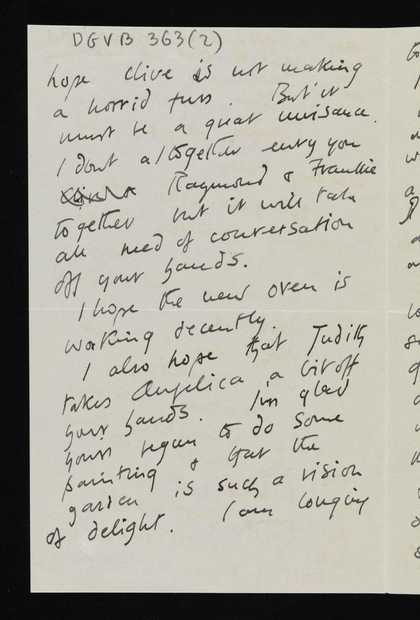 DGVB 363(2)
hope Clive is not making
a horrid fuss. But it
must be a great nuisance.
I dont altogether envy you
Raymond & Frankie
together but it will take
all need of conversation
off your hands.
I hope the new oven is
working decently.
I also hope that Judith
takes Angelica a bit off
your hands. I'm glad
youve begun to do some
painting & that the
garden is such a vision
of delight. I am longing